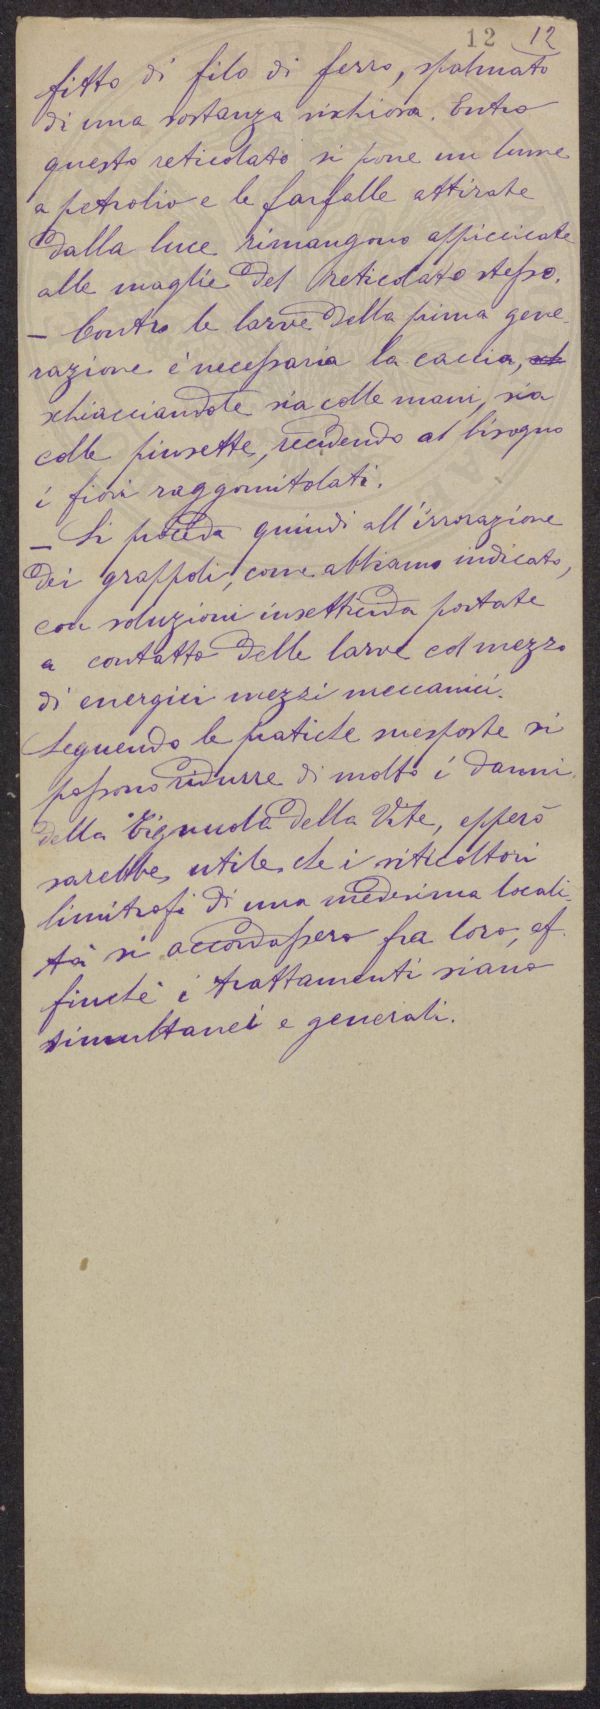 12 12
fitto di filo di ferro, spalmato
di una sostanza vischiosa. Entro
questo reticolato si pone un lume
a petrolio e le farfalle attirate
dalla luce rimangono appiccicate
alle maglie del reticolato stesso.
— Contro le larve della prima gene-
razione è necessaria la caccia,
schiacciandole sia colle mani, sia
colle pinsette, recidendo al bisogno
i fiori raggomitolati.
— Si proceda quindi all'irrorazione
dei grappoli, come abbiamo indicato,
con soluzioni insetticida portate
a contatto delle larve col mezzo
di energici mezzi meccanici.
Seguendo le pratiche suesposte si
possono ridurre di molto i danni
della Tignuola della Vite, epperò
sarebbe utile che i viticoltori
limitrofi di una medesima locali-
tà si accordassero fra loro, af-
finchè i trattamenti siano
simultanei e generali.